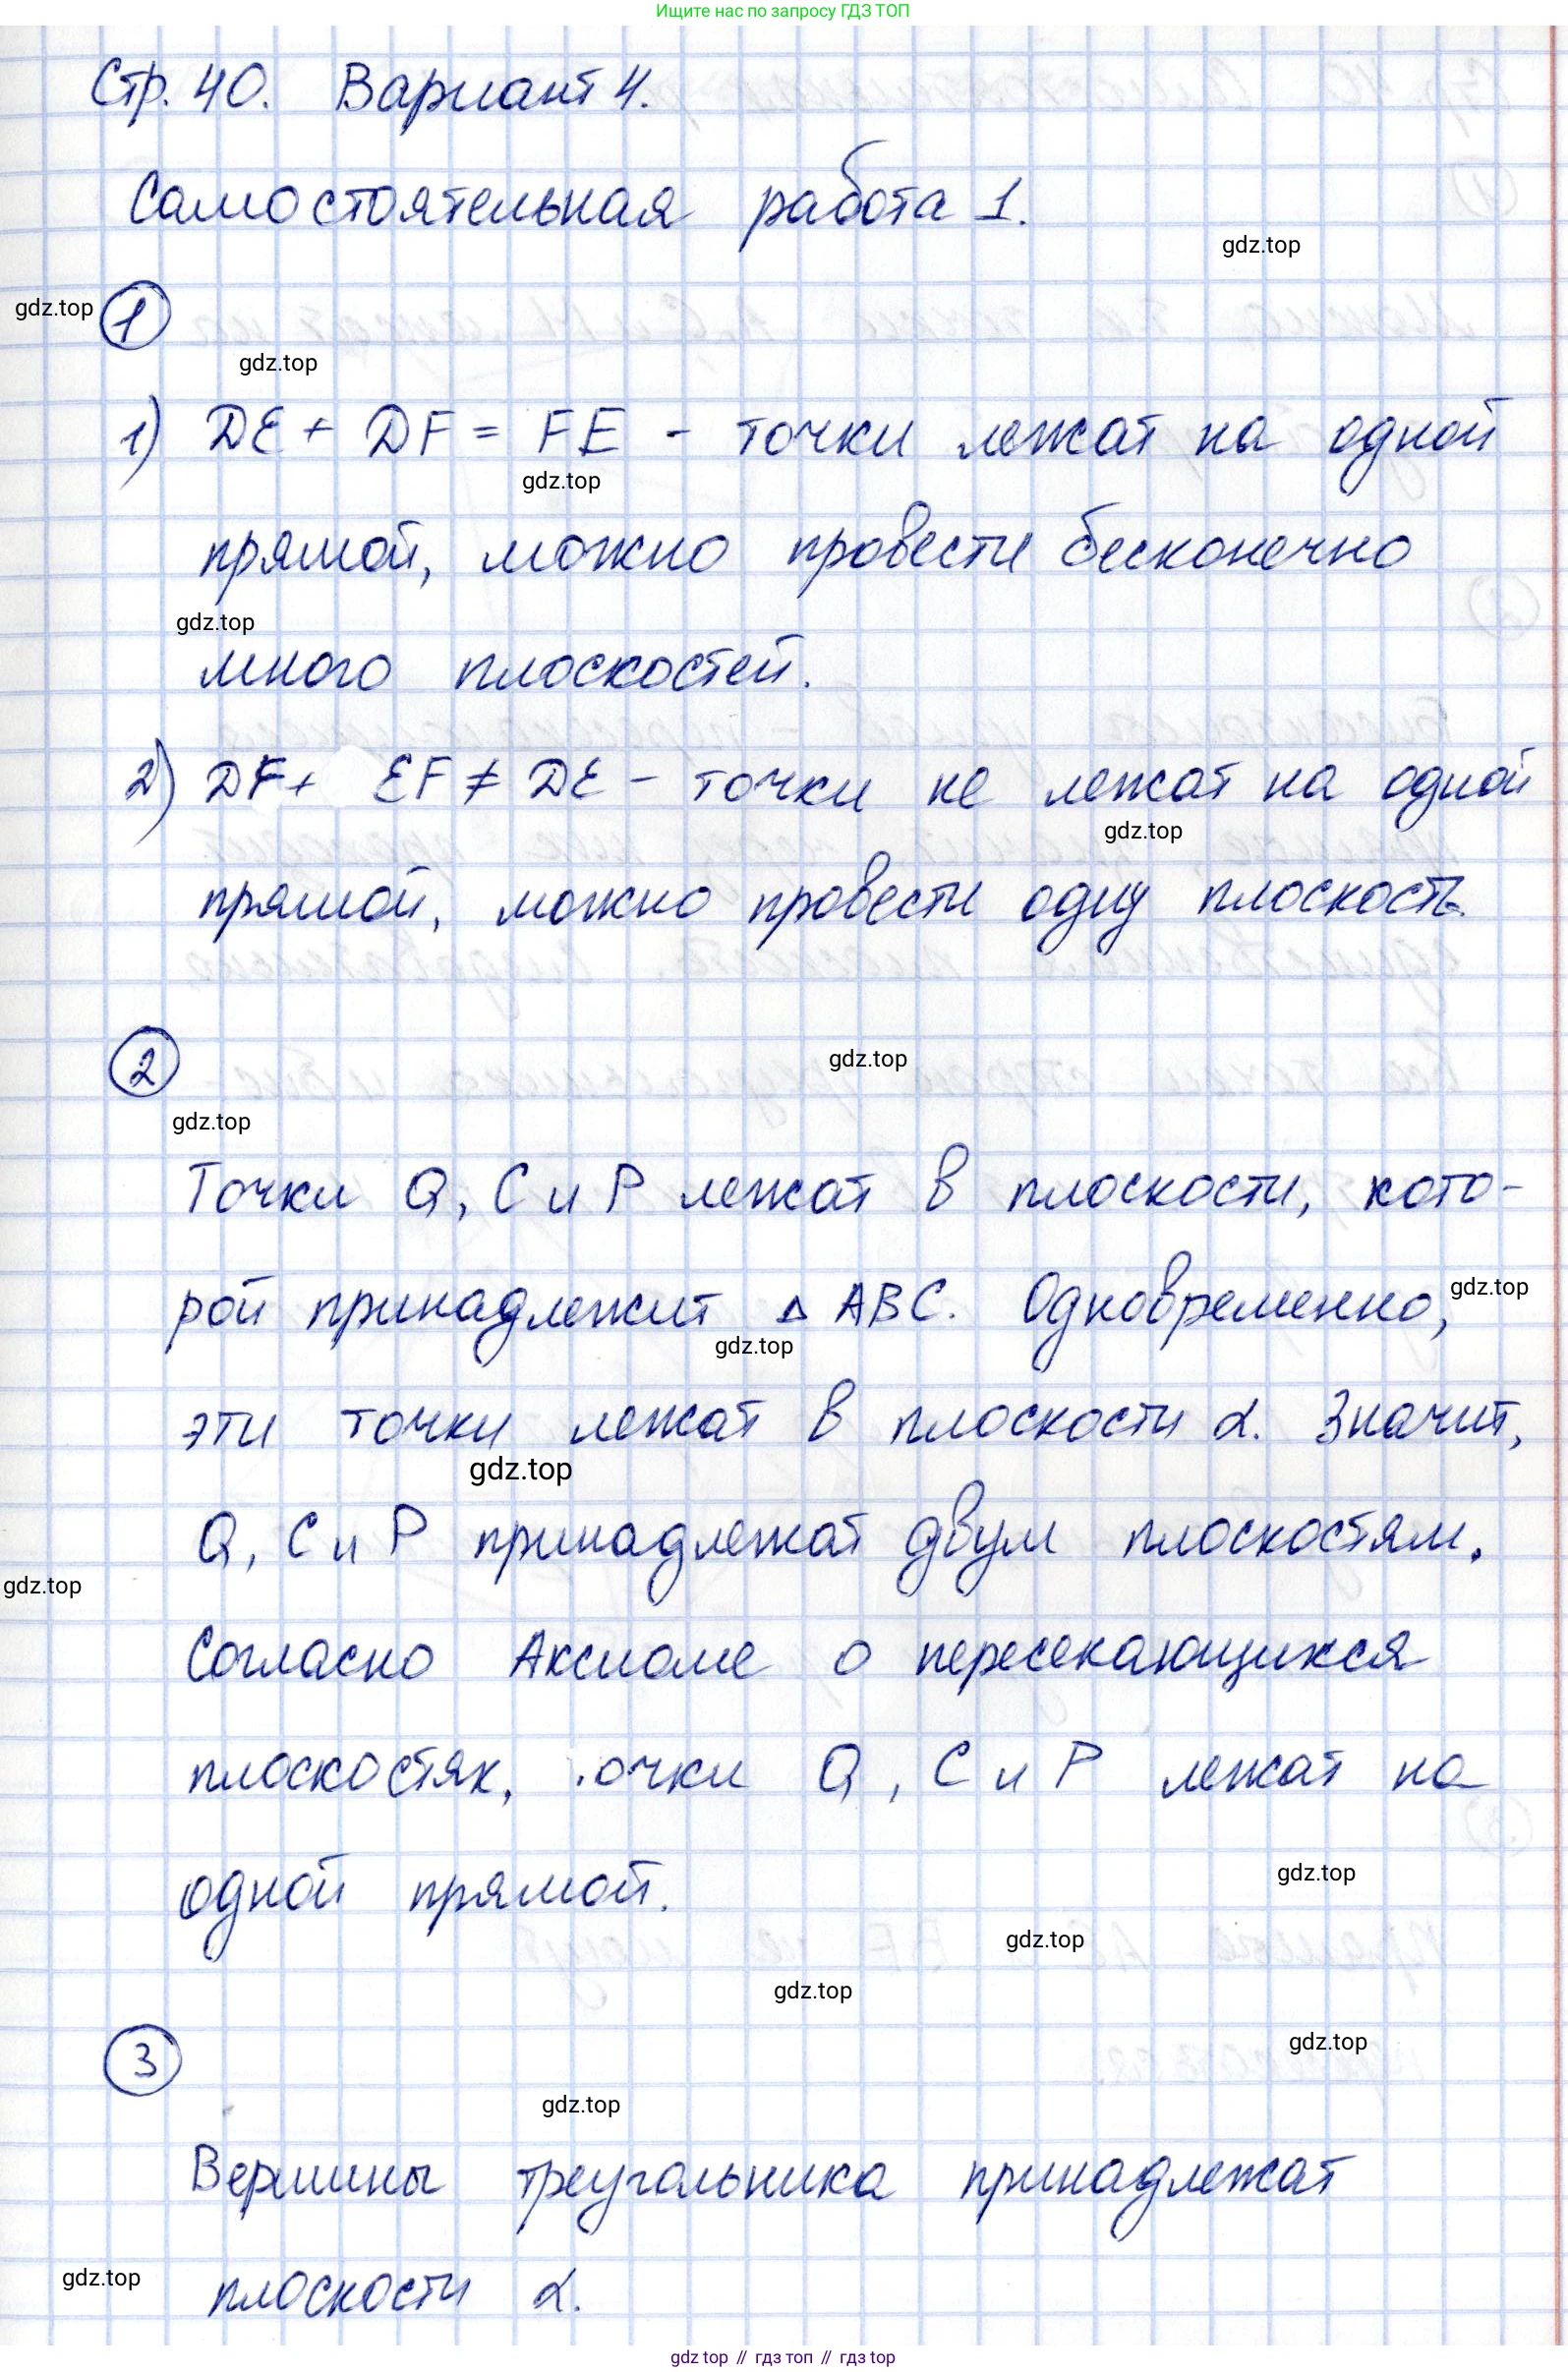 Ищите нас по запросу ГДЗ ТОП
Стр. 40. Вариант 4.
Самостоятельная работа 1.
gdz.top
gdz.top
1
gdz.top
1) DE + DF = FE - точки лежат на одной
gdz.top
прямой, можно провести бесконечно
gdz.top
много плоскостей.
2) DF + EF ≠ DE - точки не лежат на одной
gdz.top
прямой, можно провести одну плоскость.
2
gdz.top
gdz.top
Точки Q, C и P лежат в плоскости, кото-
рой принадлежит Δ ABC. Одновременно,
gdz.top
gdz.top
эти точки лежат в плоскости α. Значит,
gdz.top
Q, C и P принадлежат двум плоскостям.
gdz.top
Согласно Аксиоме о пересекающихся
плоскостях, очки Q, C и P лежат на
одной прямой.
gdz.top
gdz.top
gdz.top
gdz.top
3
gdz.top
Вершины треугольника принадлежат
gdz.top
плоскости α.
gdz.top // гдз топ // гдз top